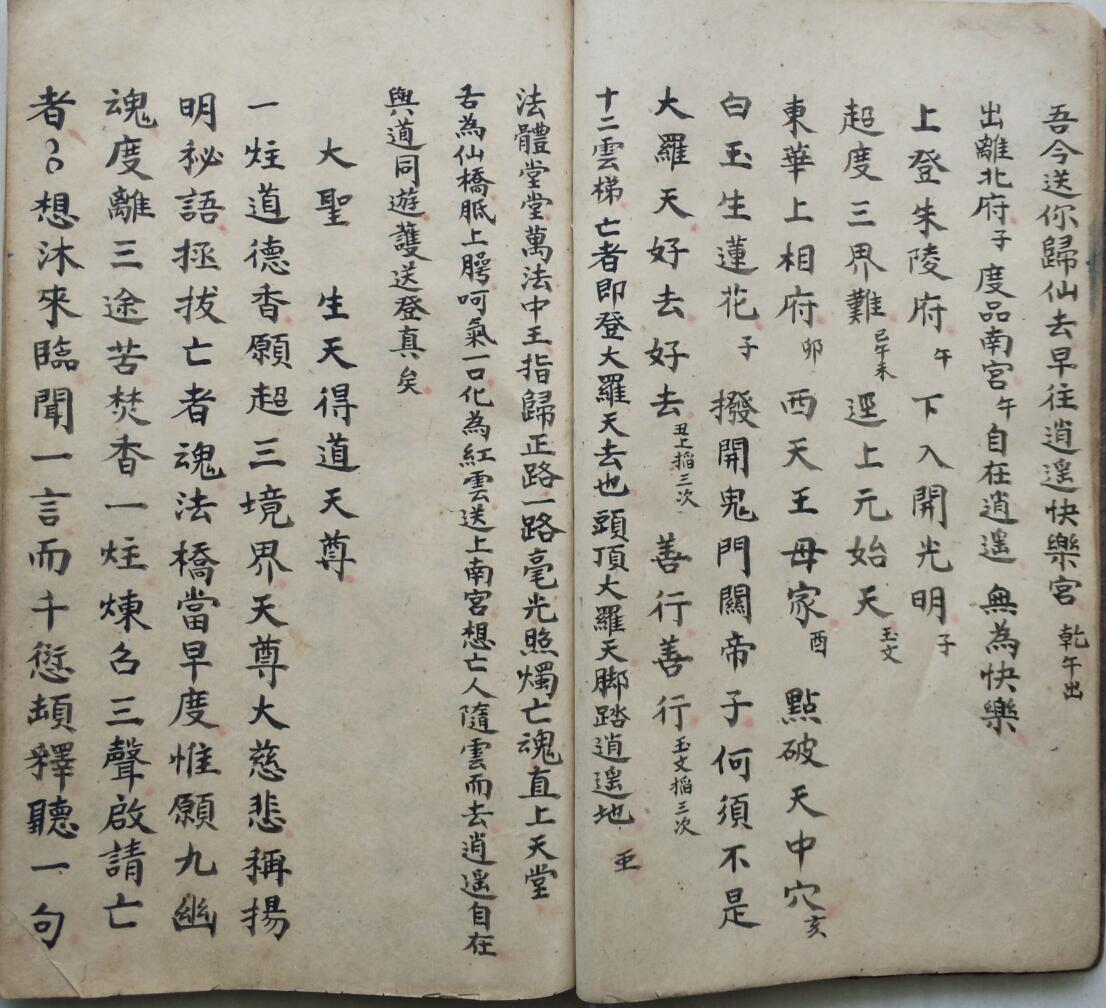 吾今送你歸仙去早往逍遥快樂宮 乾午出
出離北府子 度品南宮午自在逍遥 無為快樂
上登朱陵府午 下入開光明子
超度三界難巳午未 逕上元始天玉文
東華上相府卯 西天王母家酉 點破天中穴亥
白玉生蓮花子 撥開鬼門關帝子何須不是
大羅天好去好去丑上搯三次 善行善行玉文搯三次
十二雲梯 亡者即登大羅天去也頭頂大羅天脚踏逍遥地
法體堂堂萬法中王指歸正路一路毫光照燭亡魂直上天堂
舌為仙橋胝上腭呵氣一口化為紅雲送上南宮想亡人隨雲而去逍遥自在
與道同遊護送登真矣
大聖 生天得道天尊
一炷道德香願超三境界天尊大慈悲稱揚
明秘語拯拔亡者魂法橋當早度惟願九幽
魂度離三途苦焚香一炷煉召三聲啟請亡
者〻想沐來臨聞一言而千愆頓釋聽一句